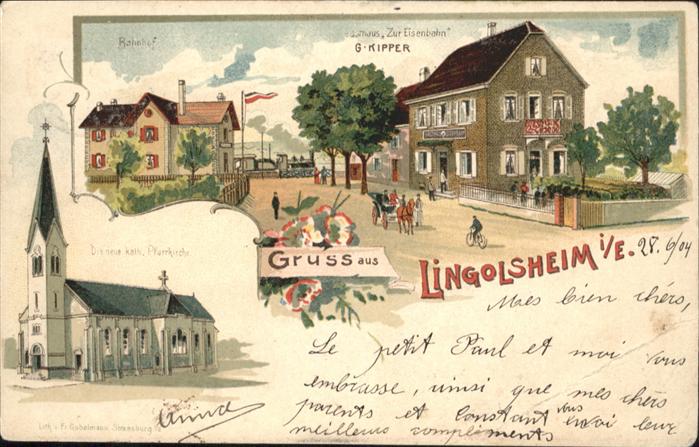 Bahnhof
Gasthaus „Zur Eisenbahn"
G. KIPPER
Die neue kath. Pfarrkirche.
Gruss aus
LINGOLSHEIM i/E. 28. 6/04
Mes bien chers,
Le petit Paul et moi vous
embrasse, ainsi que mes chers
parents et Constant vous envoi leur
meilleurs compliments
Lith. v. Fr. Gobelmann Strassburg